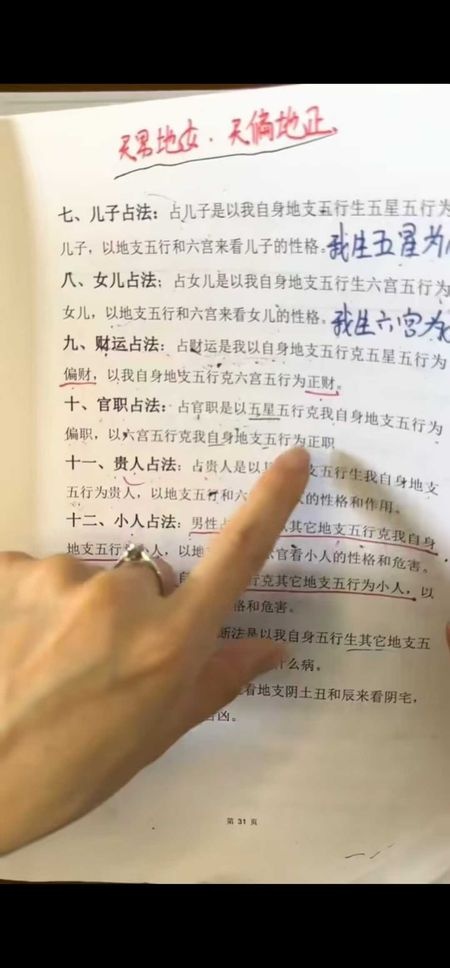 天男地女.天偏地正
七、儿子占法：占儿子是以我自身地支五行生五星五行为
儿子，以地支五行和六宫来看儿子的性格。我生五星为
八、女儿占法：占女儿是以我自身地支五行生六宫五行为
女儿，以地支五行和六宫来看女儿的性格。我生六宫为
九、财运占法：占财运是我以自身地支五行克五星五行为
偏财，以我自身地支五行克六宫五行为正财。
十、官职占法：占官职是以五星五行克我自身地支五行为
偏职，以六宫五行克我自身地支五行为正职
十一、贵人占法：占贵人是以 支五行生我自身地支
五行为贵人，以地支五行和六 人的性格和作用。
十二、小人占法：男性占 其它地支五行克我自身
地支五行为小人，以地 官看小人的性格和危害。
自 行克其它地支五行为小人，以
格和危害。
断法是以我自身五行生其它地支五
什么病。
看地支阴土丑和辰来看阴宅，
凶。
第 31 頁